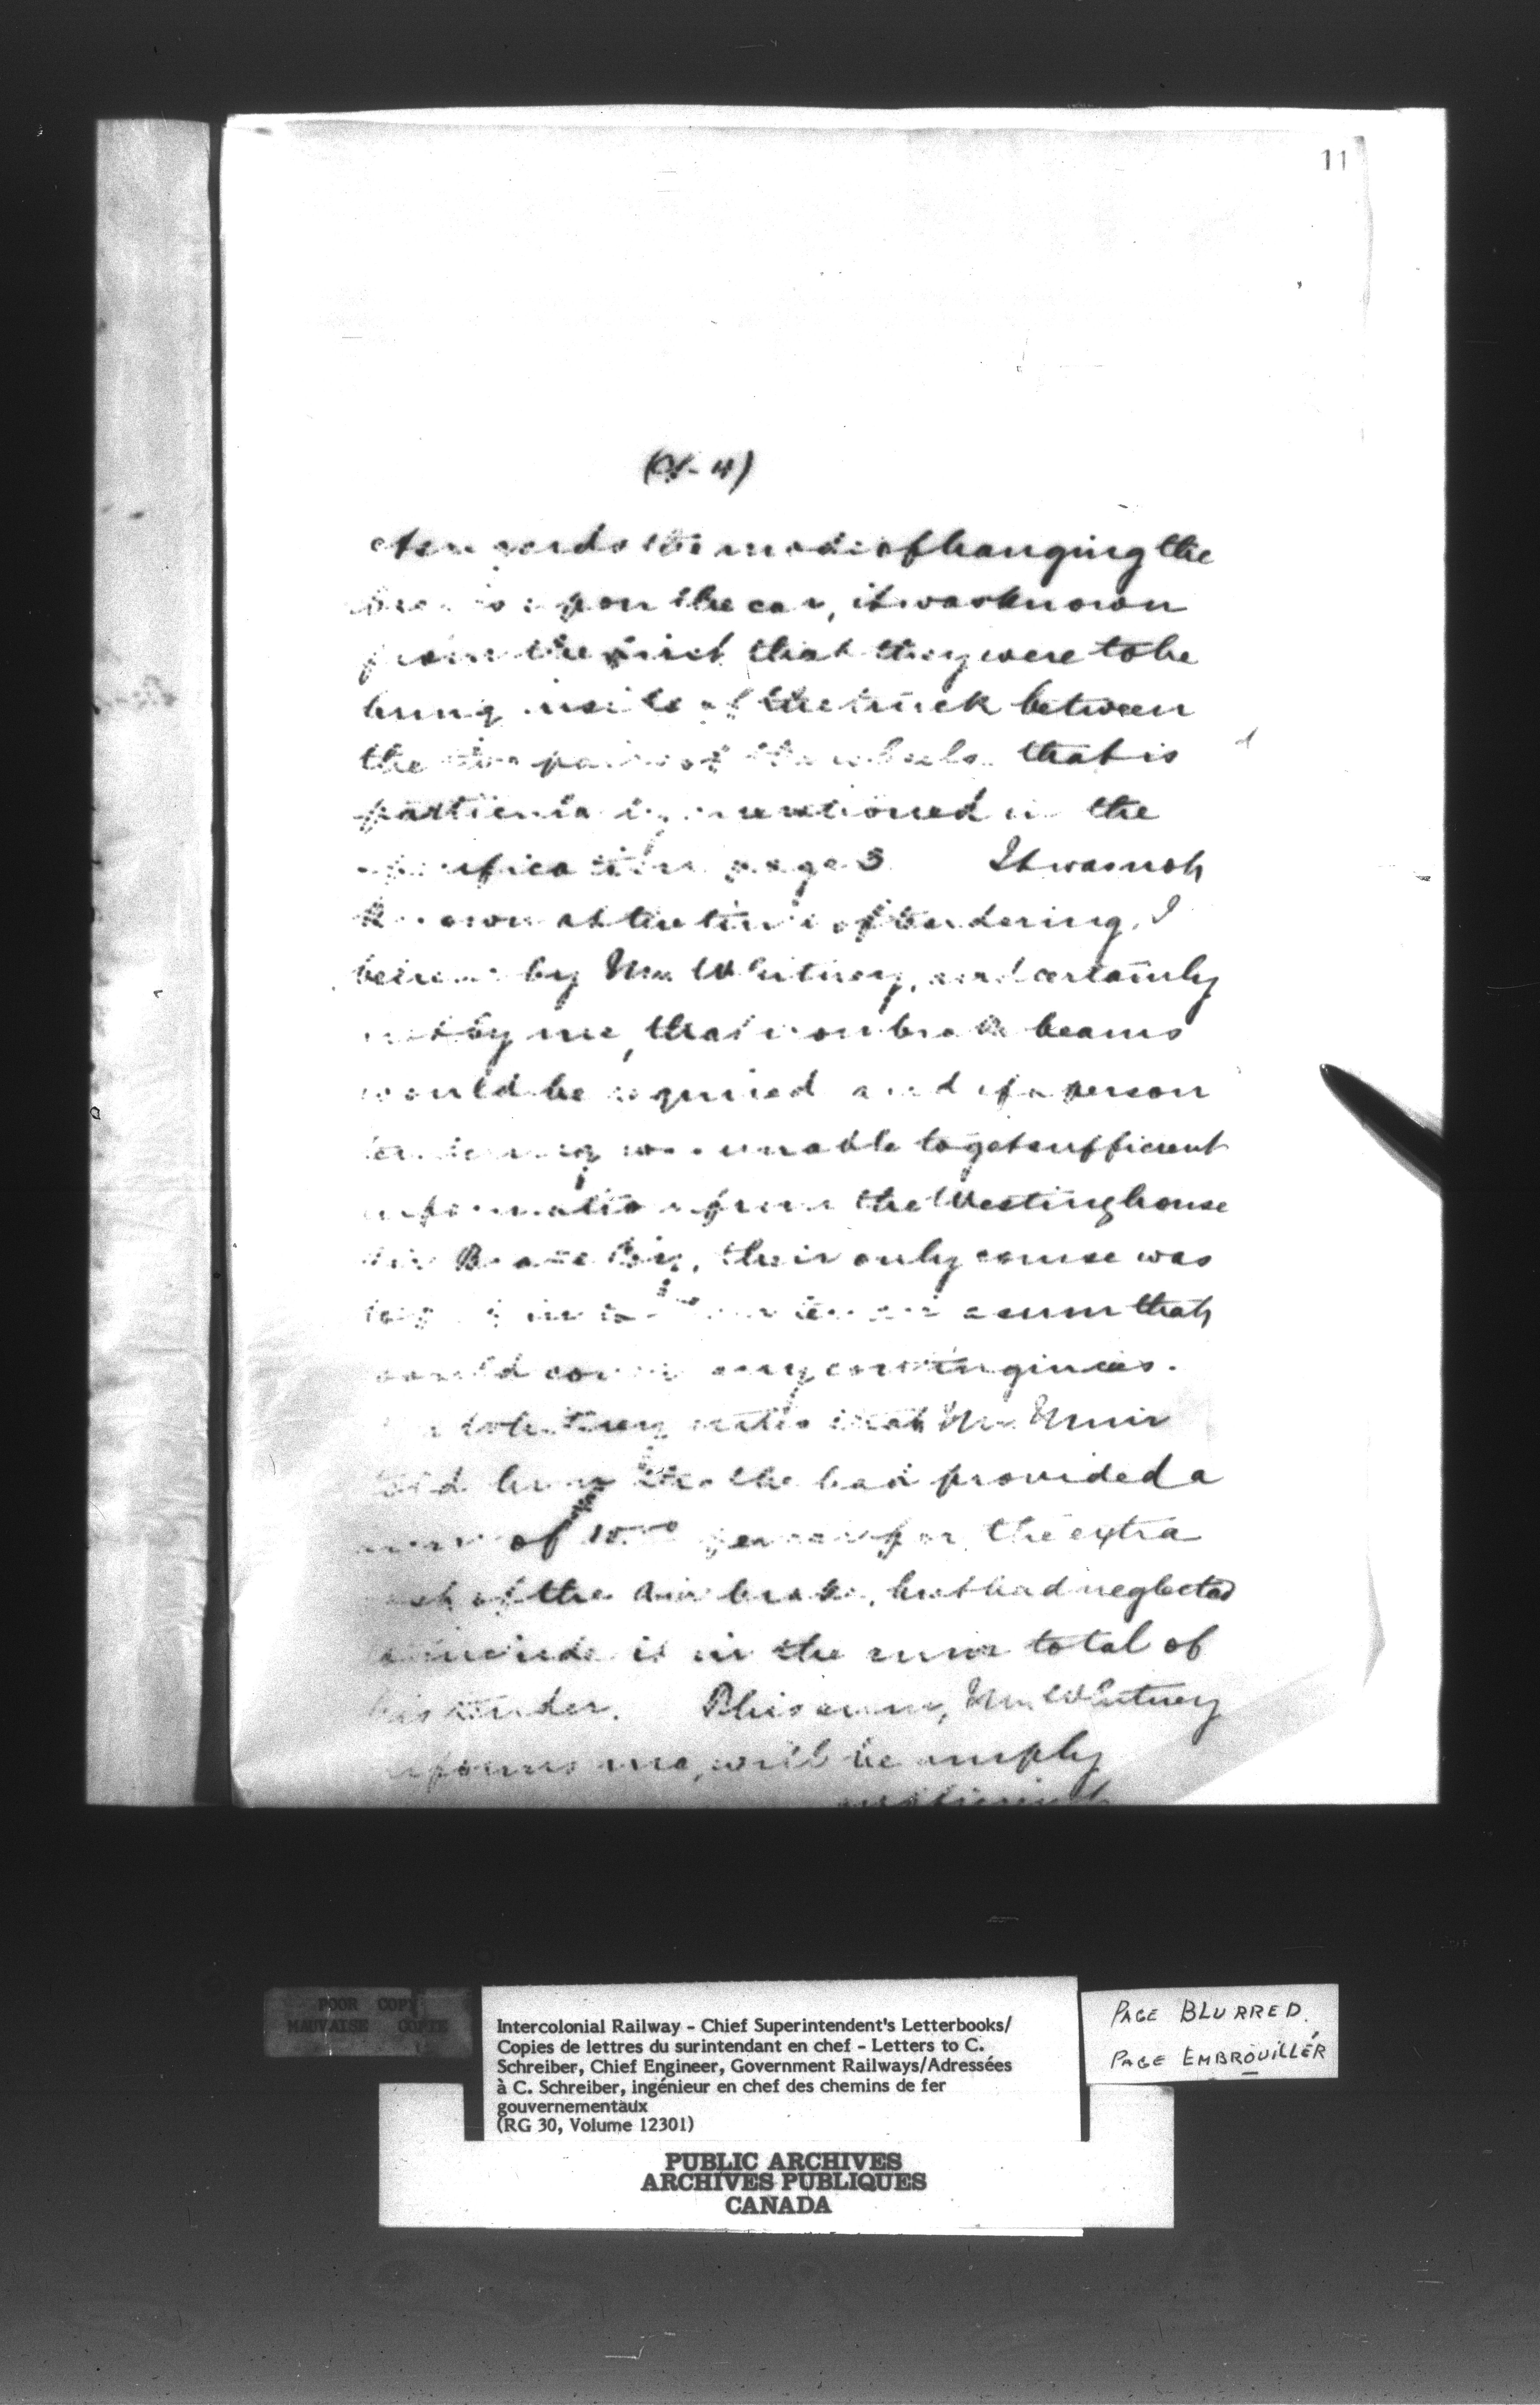 11
As regards the mode of hanging the
upon the car, it was known
from the first that they were to be
hung inside of the truck between
the two pairs of the wheels that is
particularly mentioned in the
specification page 3 It was not
known at the time of tendering, I
by Mr Whitney, and certainly
not by me, that iron brake beams
would be required and if a person
tendering was unable to get sufficient
information from the Westinghouse
Air Brake Co, their only course was
in a sum that
would cover any contingincies.
Mr Whitney states that Mr Muir
told him that he had provided a
of for the extra
of the Air brake, but had neglected
to include it in the sum total of
his tender. This sum, Mr Whitney
informs me, will be amply
sufficient
POOR COPY
MAUVAISE COPIE
Intercolonial Railway - Chief Superintendent's Letterbooks/
Copies de lettres du surintendant en chef - Letters to C.
Schreiber, Chief Engineer, Government Railways/Adressées
à C. Schreiber, ingénieur en chef des chemins de fer
gouvernementaux
(RG 30, Volume 12301)
PAGE BLURRED.
PAGE EMBROUILLÉR
PUBLIC ARCHIVES
ARCHIVES PUBLIQUES
CANADA